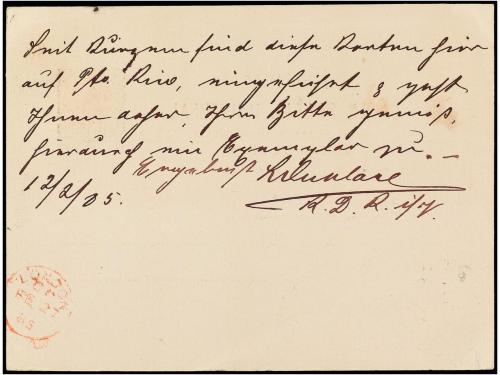 Seit Kurzem sind diese Karten hier
auf Pto. Rico, eingeführt & geht
Ihnen daher, Ihrer Bitte gemäß,
hierdurch ein Exemplar zu. –
Ergebenst
12/2/85.
LONDON
FE
85